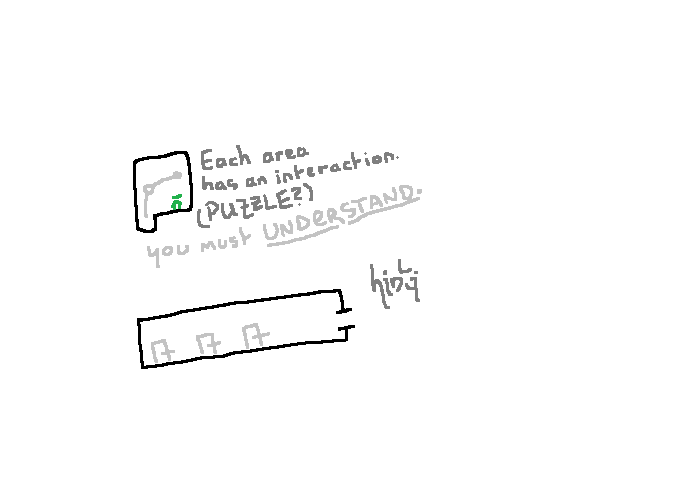 Each area
has an interaction.
(PUZZLE?)
you must UNDERSTAND.